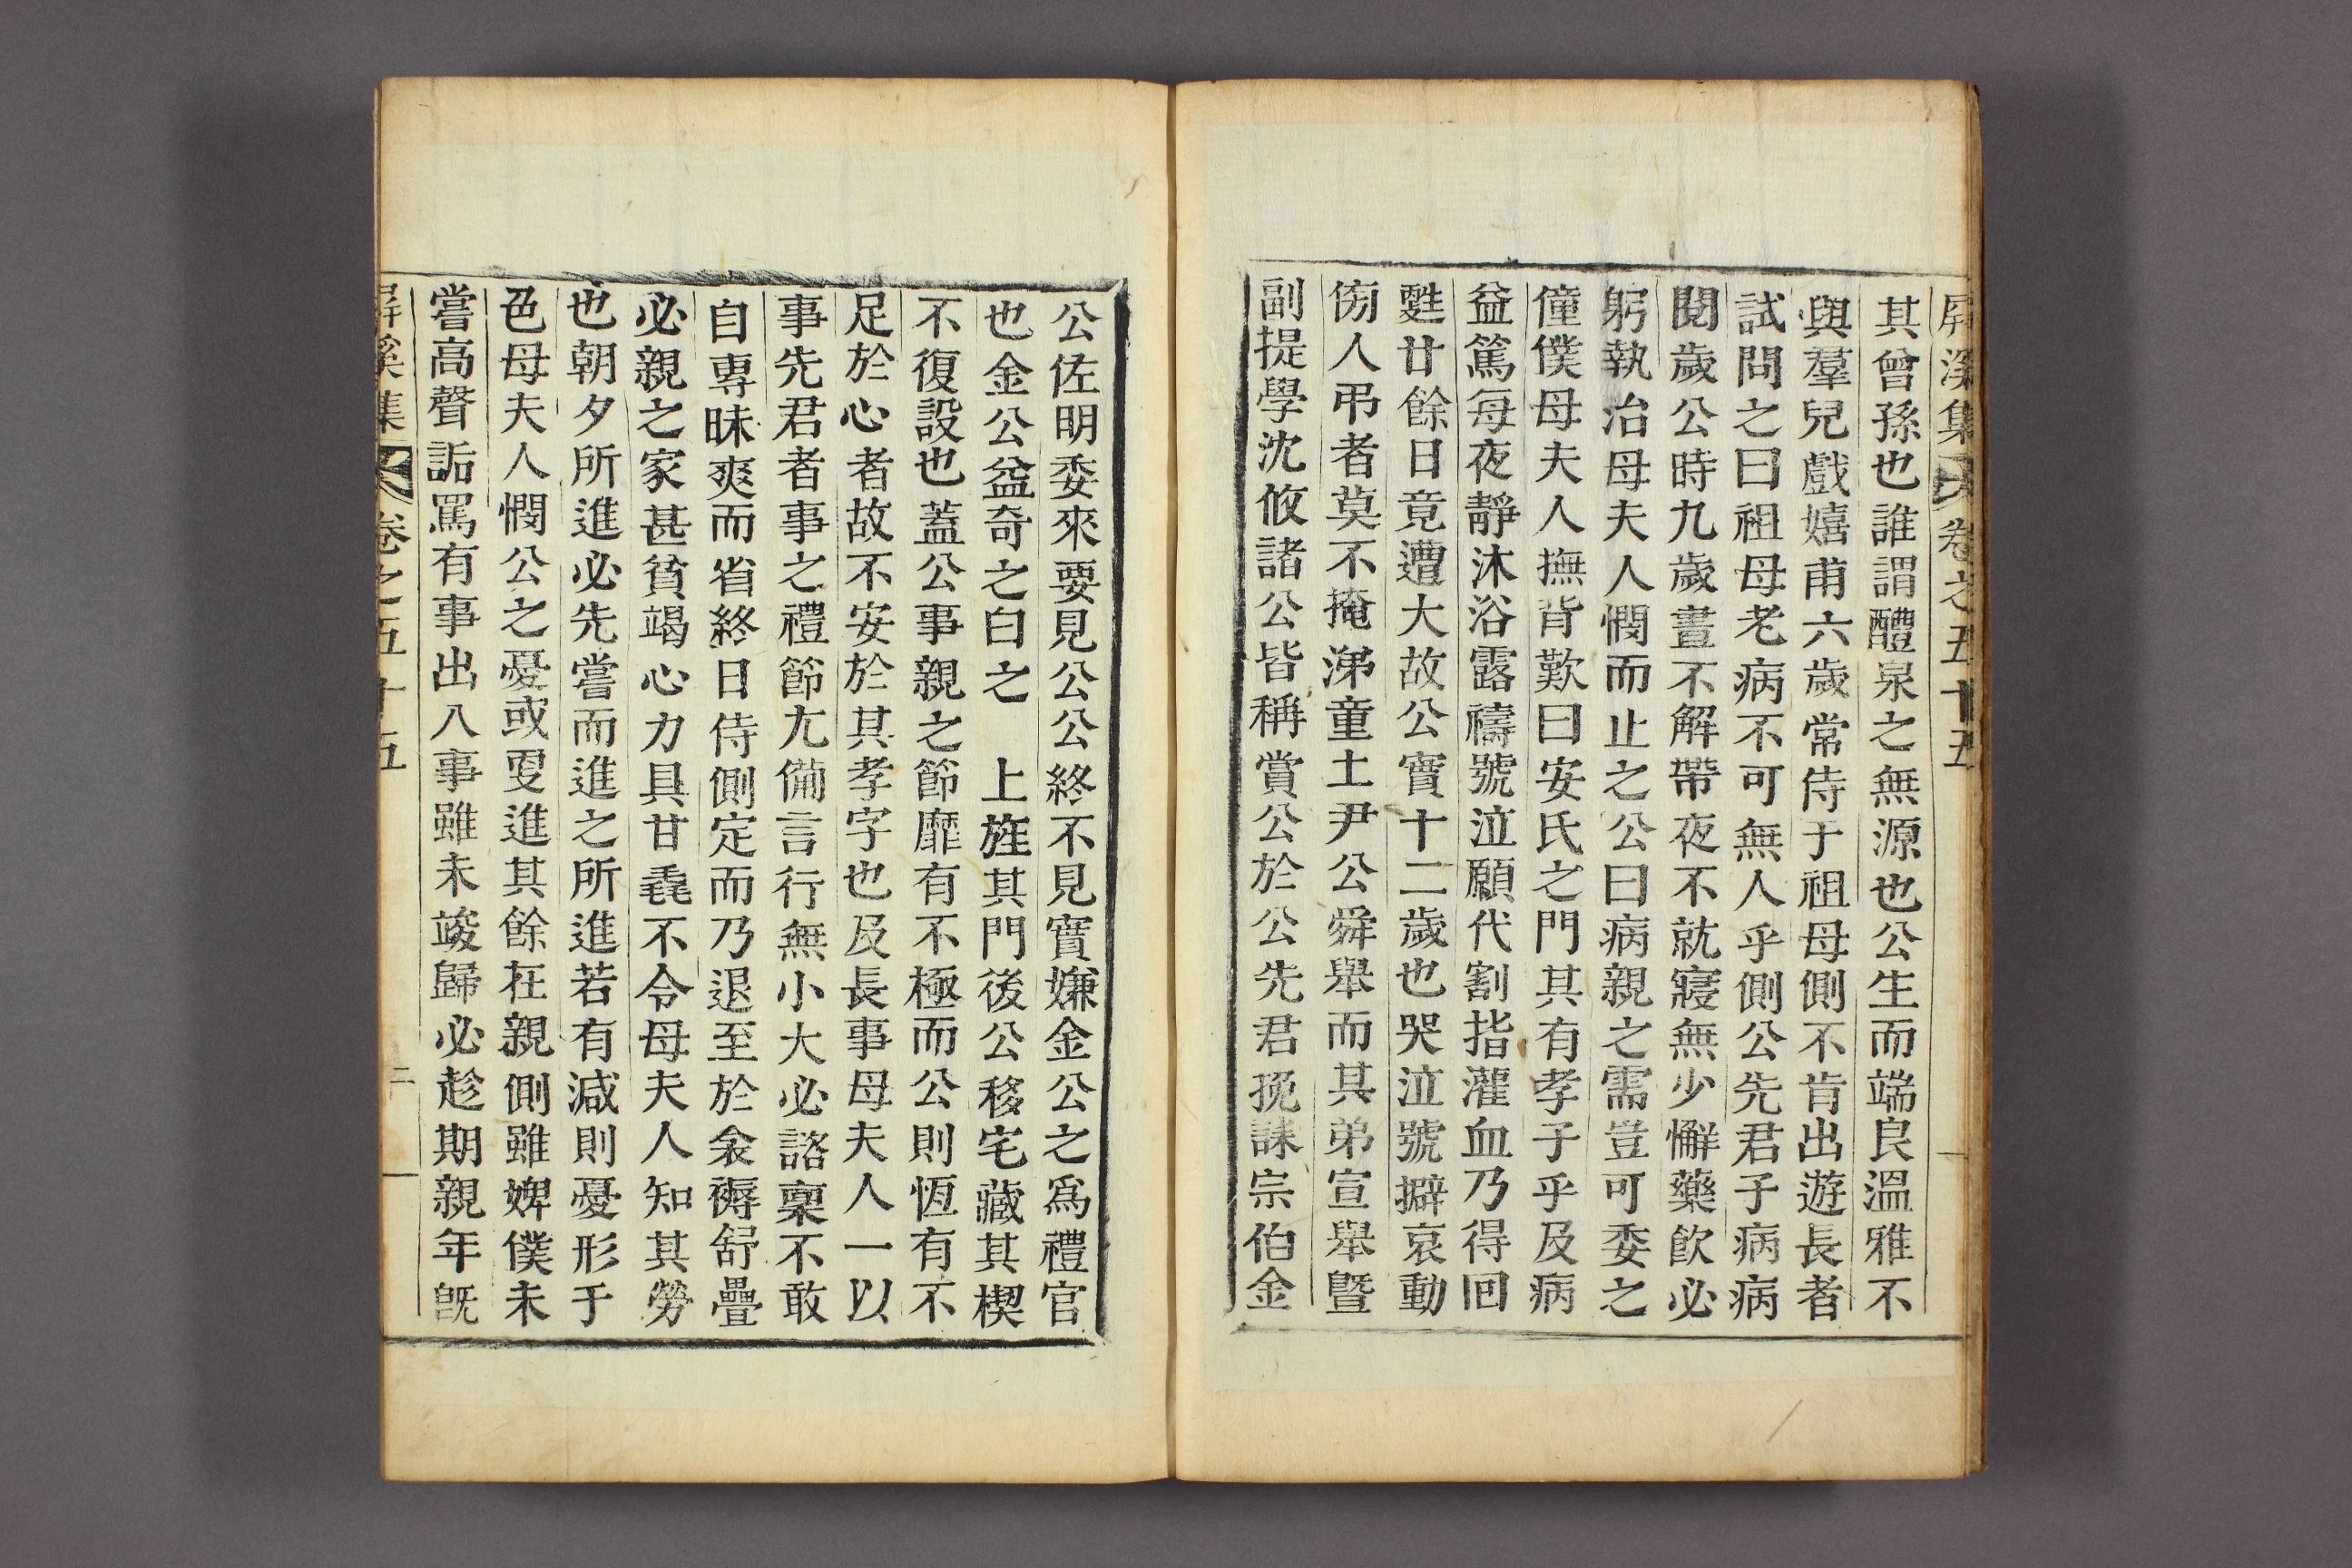 屛溪集 卷之五十五 一
其曾孫也誰謂醴泉之無源也公生而端良溫雅不
與羣兒戲嬉甫六歲常侍于祖母側不肯出遊長者
試問之曰祖母老病不可無人乎側公先君子病病
閱歲公時九歲晝不解帶夜不就寢無少懈藥飮必
躬執治母夫人憫而止之公曰病親之需豈可委之
僮僕母夫人撫背歎曰安氏之門其有孝子乎及病
益篤每夜靜沐浴露禱號泣願代割指灌血乃得回
甦廿餘日竟遭大故公實十二歲也哭泣號擗哀動
傍人弔者莫不掩涕童土尹公舜擧而其弟宣擧曁
副提學沈攸諸公皆稱賞公於公先君挽誄宗伯金
公佐明委來要見公公終不見實嫌金公之爲禮官
也金公益奇之白之 上旌其門後公移宅藏其楔
不復設也蓋公事親之節靡有不極而公則恆有不
足於心者故不安於其孝字也及長事母夫人一以
事先君者事之禮節尤備言行無小大必諮稟不敢
自專昧爽而省終日侍側定而乃退至於衾褥舒疊
必親之家甚貧竭心力具甘毳不令母夫人知其勞
也朝夕所進必先嘗而進之所進若有減則憂形于
色母夫人憫公之憂或更進其餘在親側雖婢僕未
嘗高聲詬罵有事出入事雖未竣歸必趁期親年旣
屛溪集 卷之五十五 二